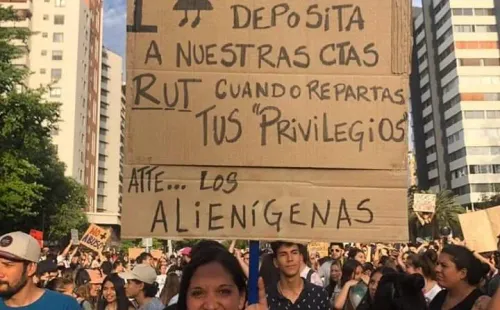 DEPOSITA
A NUESTRAS CTAS
RUT CUANDO REPARTAS
TUS "PRIVILEGIOS"
ATTE... LOS
ALIENÍGENAS